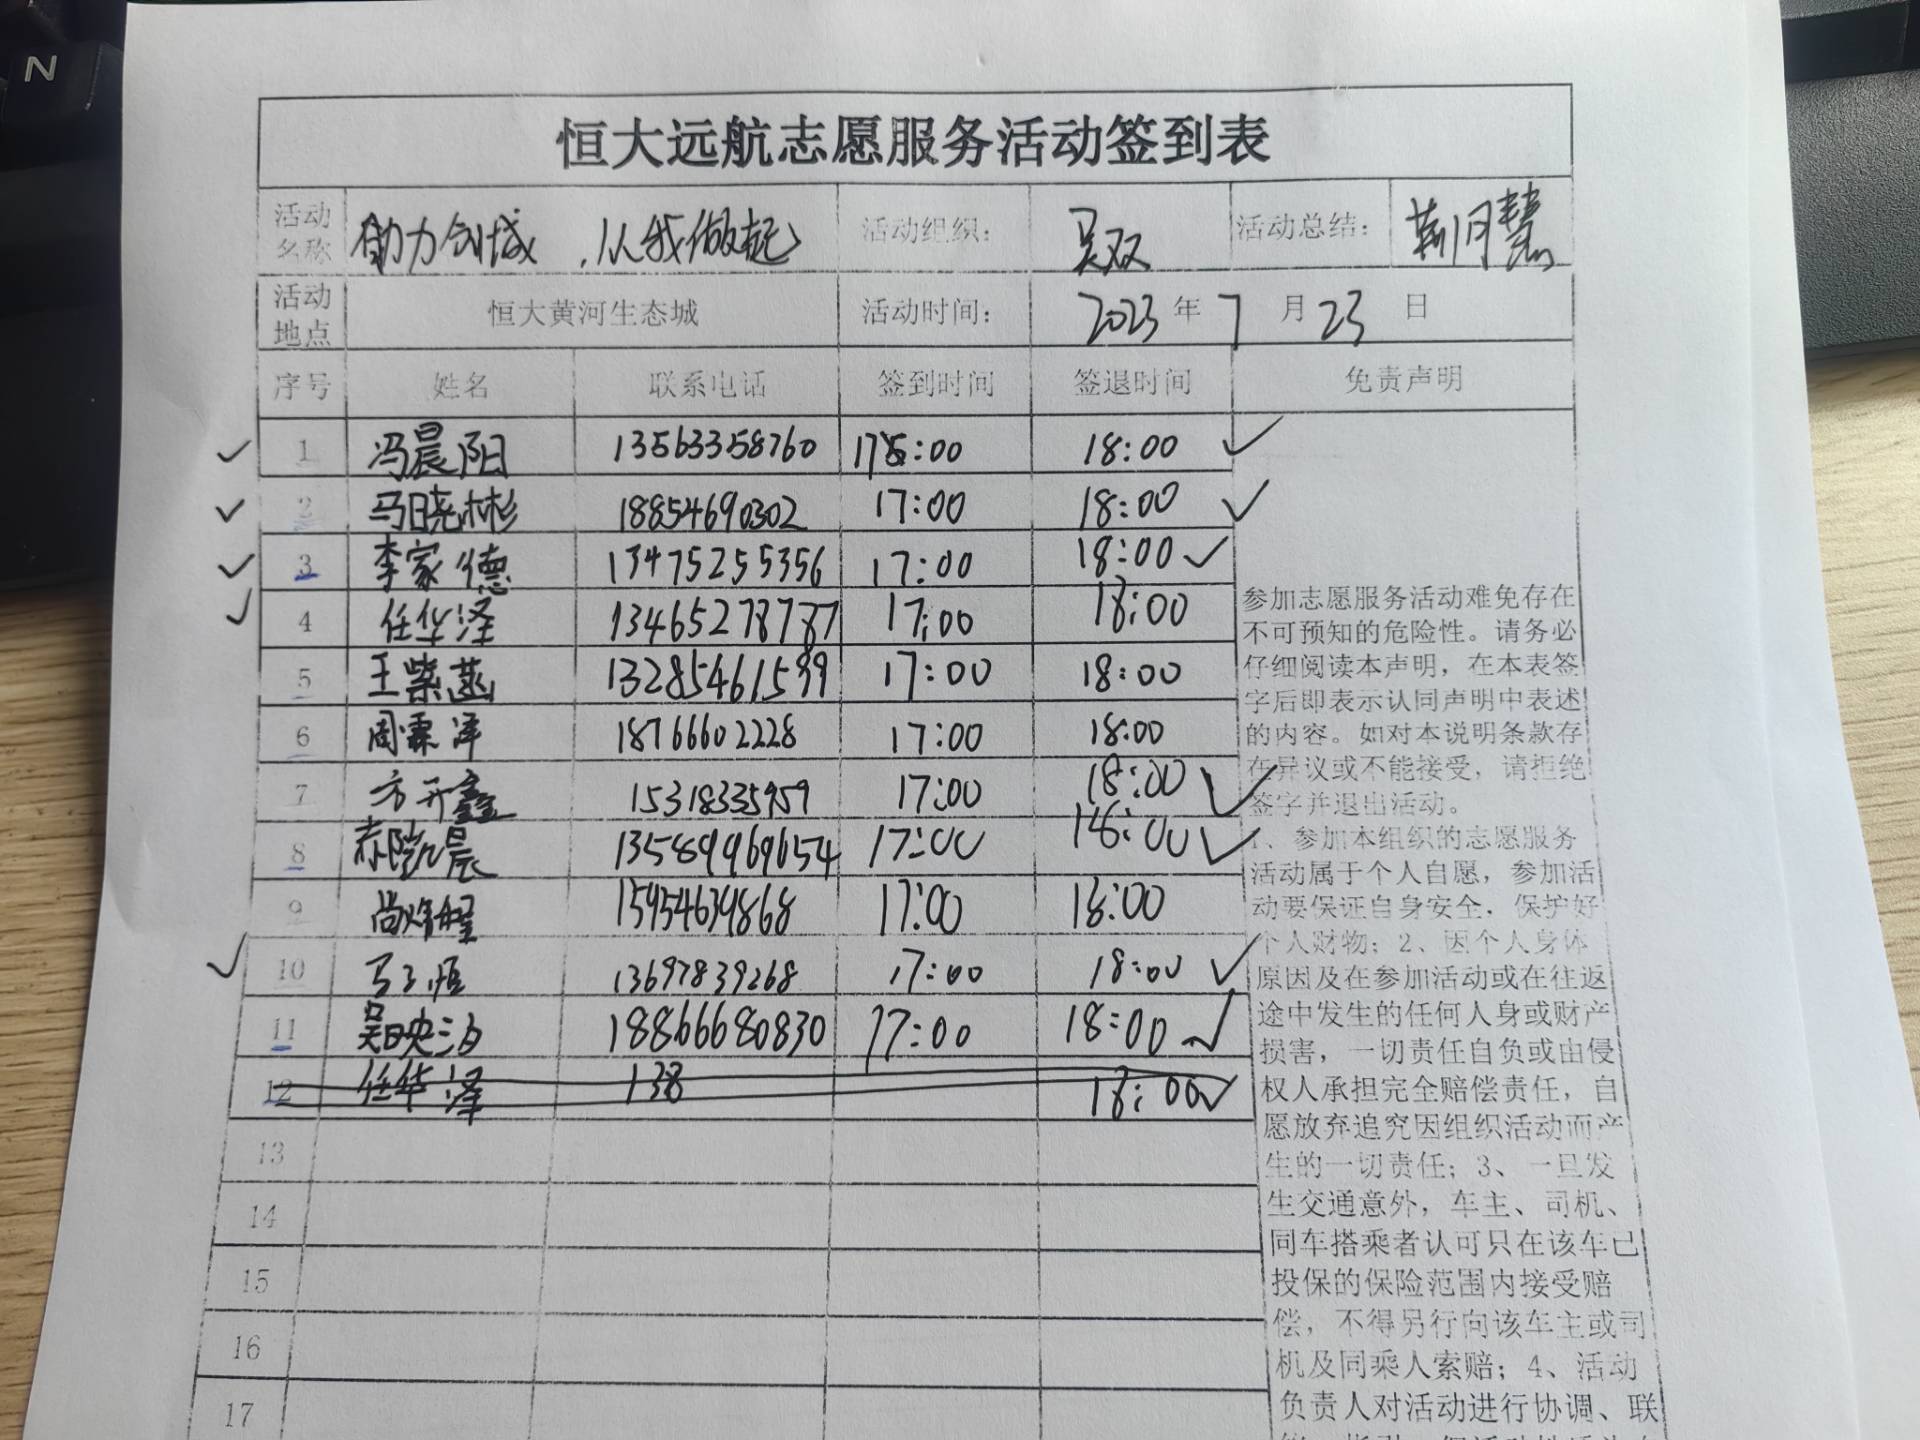 N
恒大远航志愿服务活动签到表
活动名称 助力创城,从我做起 活动组织: 吴双 活动总结: 靳月慧
活动地点 恒大黄河生态城 活动时间: 2023 年 7 月 23 日
序号 姓名 联系电话 签到时间 签退时间 免责声明
1 冯晨阳 13563358760 17:00 18:00
2 马晓彬 18854690302 17:00 18:00
3 李家德 13475255356 17:00 18:00
4 任华泽 13465278787 17:00 18:00
5 王紫菡 13285461539 17:00 18:00
6 周霖泽 18766602228 17:00 18:00
7 方开鑫 15318335959 17:00 18:00
8 凯晨 13589969654 17:00 18:00
9 尚 15954639868 17:00 18:00
10 马子恒 13697839268 17:00 18:00
11 吴映汐 18866680830 17:00 18:00
12 任华泽 138 18:00
13
14
15
16
17
参加志愿服务活动难免存在
不可预知的危险性。请务必
仔细阅读本声明,在本表签
字后即表示认同声明中表述
的内容。如对本说明条款存
在异议或不能接受,请拒绝
签字并退出活动。
1、参加本组织的志愿服务
活动属于个人自愿,参加活
动要保证自身安全,保护好
个人财物;2、因个人身体
原因及在参加活动或在往返
途中发生的任何人身或财产
损害,一切责任自负或由侵
权人承担完全赔偿责任,自
愿放弃追究因组织活动而产
生的一切责任;3、一旦发
生交通意外,车主、司机、
同车搭乘者认可只在该车已
投保的保险范围内接受赔
偿,不得另行向该车主或司
机及同乘人索赔;4、活动
负责人对活动进行协调、联